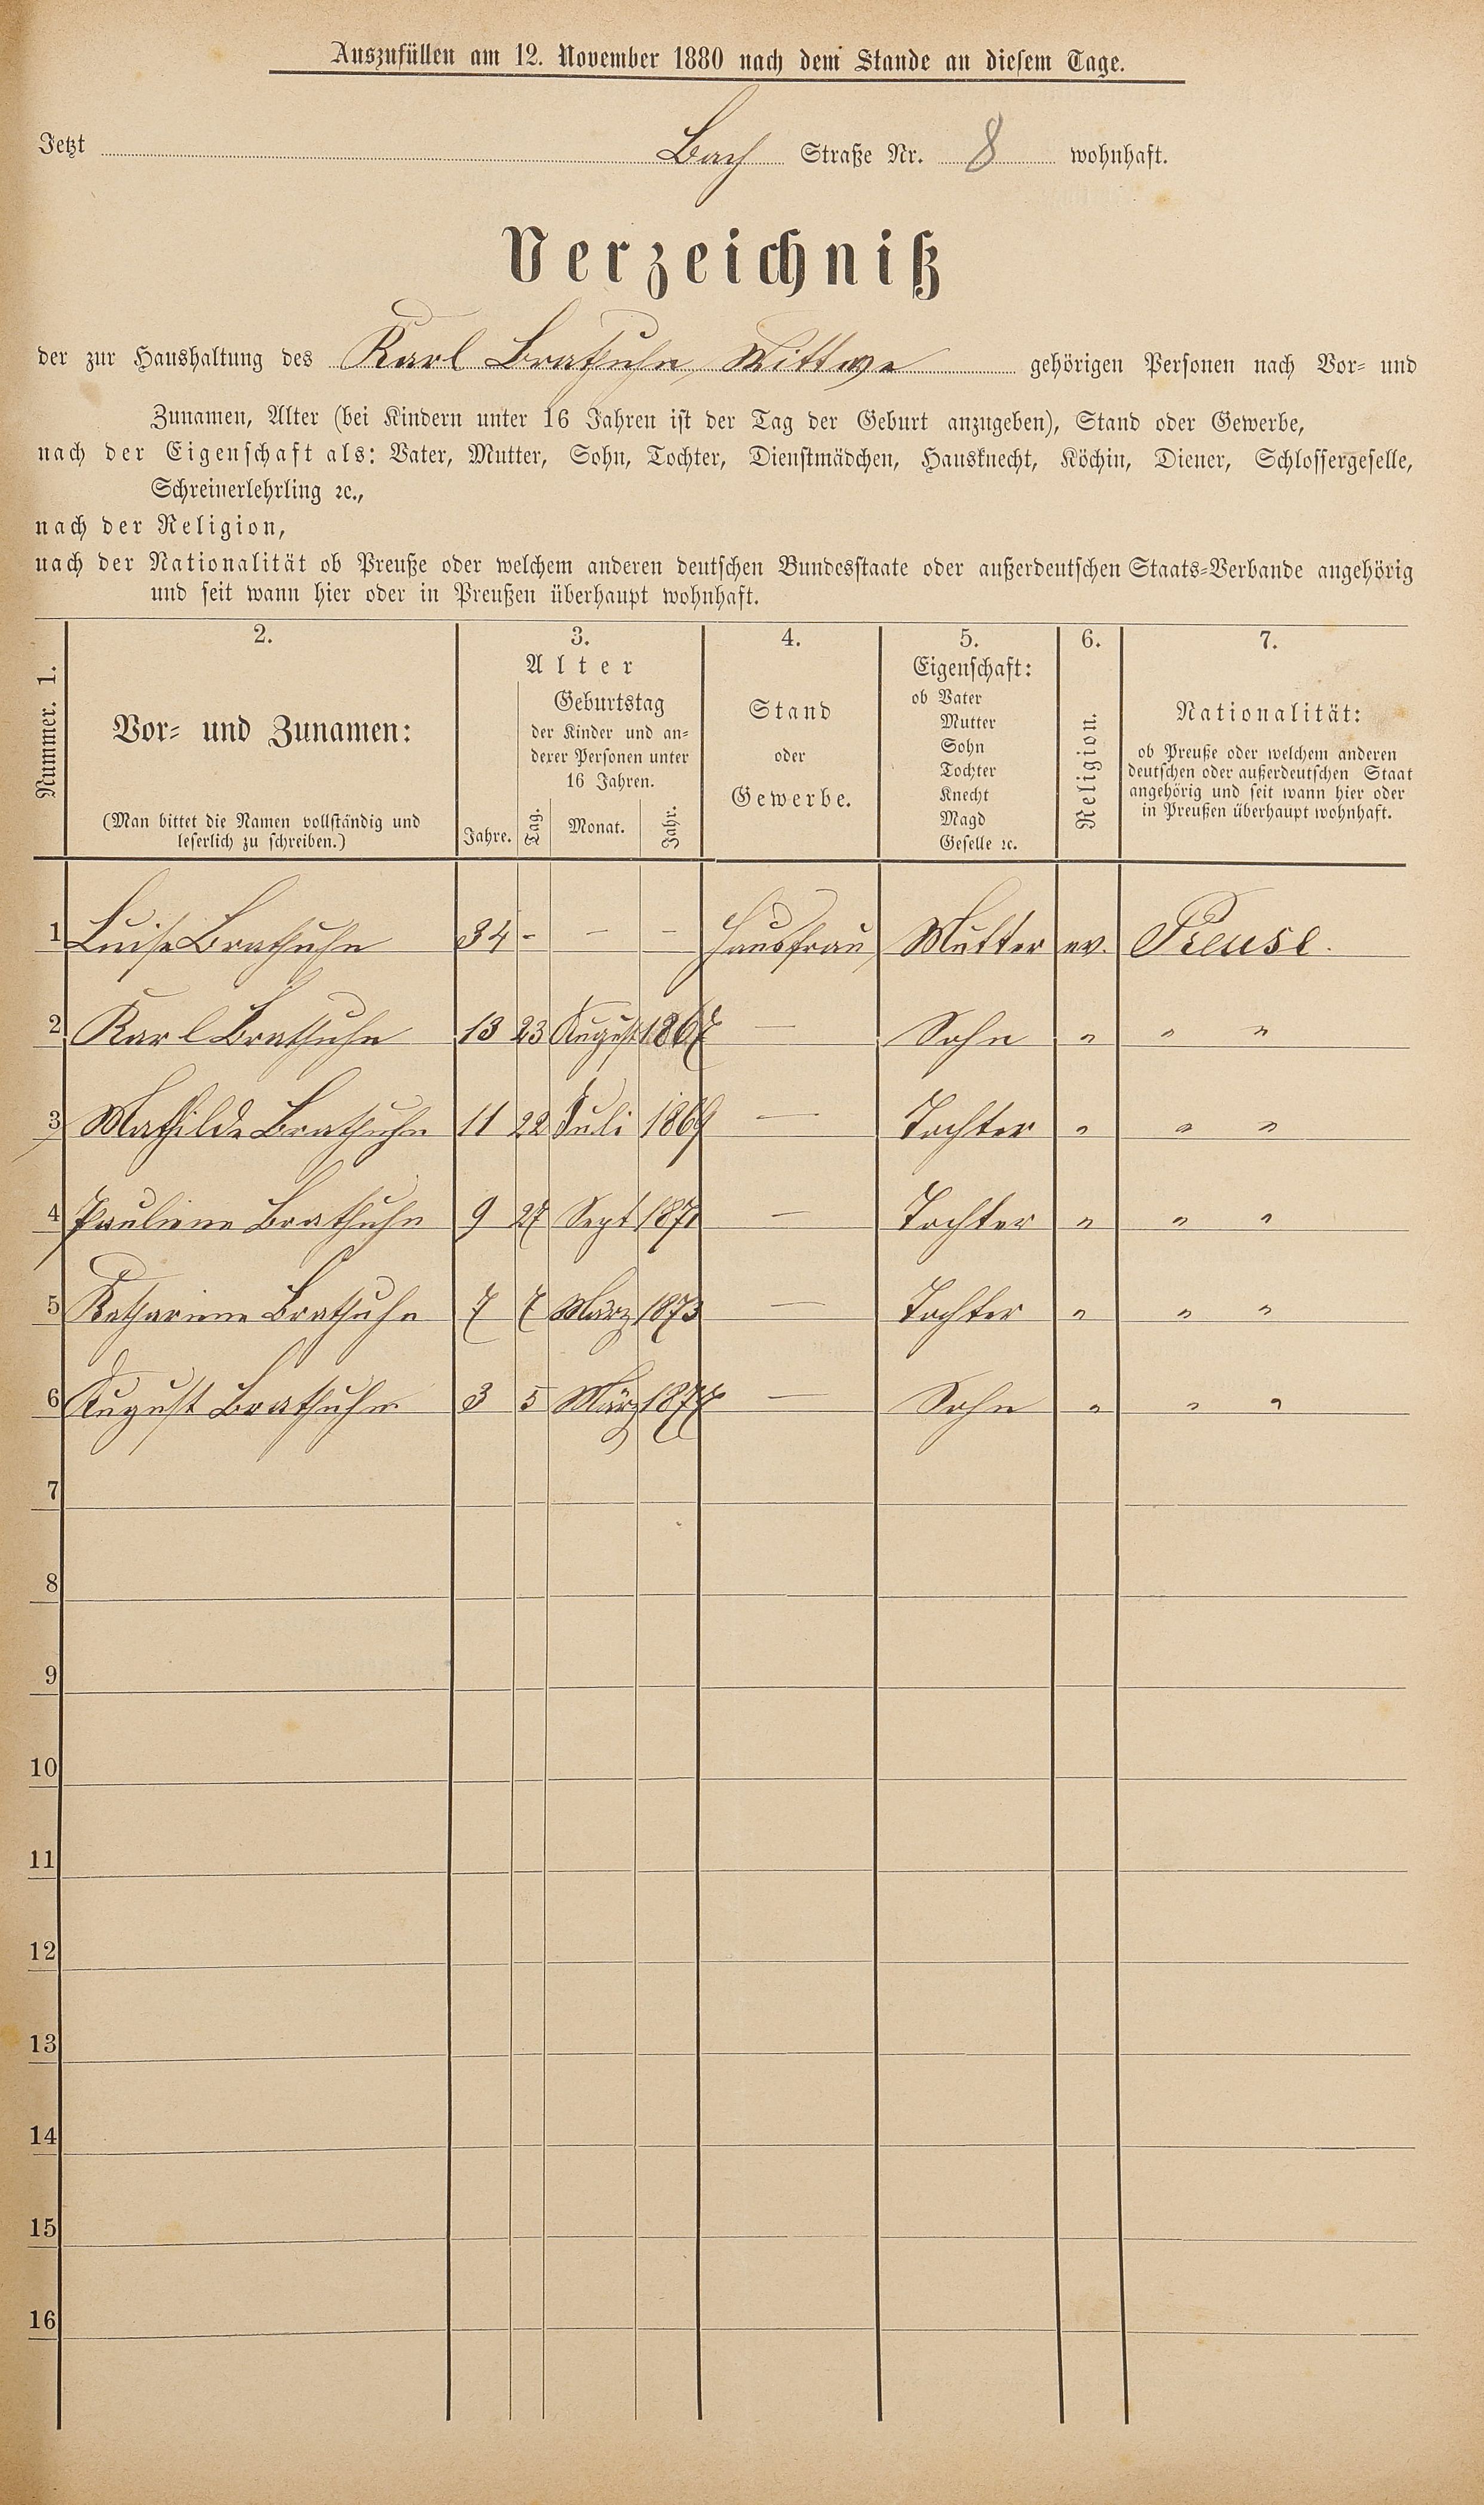 Auszufüllen am 12. November 1880 nach dem Stande an diesem Tage.
Jetzt Bach Straße Nr. 8 wohnhaft.
Verzeichniß
der zur Haushaltung des Karl Brathuhn Wittwe gehörigen Personen nach Vor- und
Zunamen, Alter (bei Kindern unter 16 Jahren ist der Tag der Geburt anzugeben), Stand oder Gewerbe,
nach der Eigenschaft als: Vater, Mutter, Sohn, Tochter, Dienstmädchen, Hausknecht, Köchin, Diener, Schlossergeselle,
Schreinerlehrling ꝛc.,
nach der Religion,
nach der Nationalität ob Preuße oder welchem anderen deutschen Bundesstaate oder außerdeutschen Staats-Verbande angehörig
und seit wann hier oder in Preußen überhaupt wohnhaft.
Nummer. 1.
2.
Vor- und Zunamen:
(Man bittet die Namen vollständig und
leserlich zu schreiben.)
3.
Alter
Jahre.
Geburtstag
der Kinder und an-
derer Personen unter
16 Jahren.
Tag. Monat. Jahr.
4.
Stand
oder
Gewerbe.
5.
Eigenschaft:
ob Vater
Mutter
Sohn
Tochter
Knecht
Magd
Geselle ꝛc.
6.
Religion.
7.
Nationalität:
ob Preuße oder welchem anderen
deutschen oder außerdeutschen Staat
angehörig und seit wann hier oder
in Preußen überhaupt wohnhaft.
1 Luise Brathuhn 34 - - - Hausfrau Mutter ev. Preuse.
2 Karl Brathuhn 13 23 August 1867 — Sohn " " "
3 Mathilde Brathuhn 11 22 Juli 1869 — Tochter " " "
4 Pauliene Brathuhn 9 27 Sept 1871 — Tochter " " "
5 Katharine Brathuhn 7 7 März 1873 — Tochter " " "
6 August Brathuhn 3 5 März 1877 — Sohn " " "
7
8
9
10
11
12
13
14
15
16